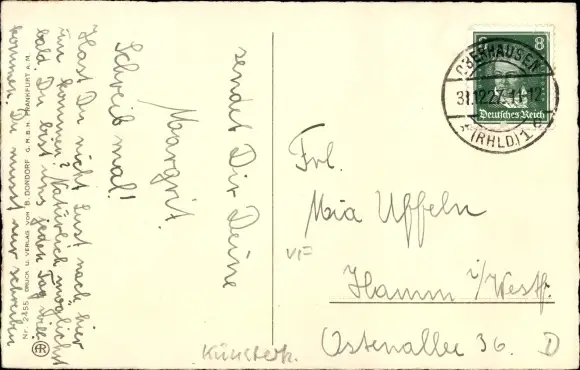 sendet Dir Deine
Margrit.
Schreib mal!
Hast Du nicht Lust nach hier
zu kommen? Natürlich möglichst
bald. Du bist uns jeden Tag will-
kommen. Du musst nur schreiben
Nr. 2455 DRUCK U. VERLAG VON B. DONDORF G.M.B.H. FRANKFURT A.M.
8
Deutsches Reich
OBERHAUSEN
31.12.27. 11-12
*(RHLD)1
Frl.
Mia Uffeln
Hamm i/Westf.
Ostenallee 36.
D
Künstlerk.